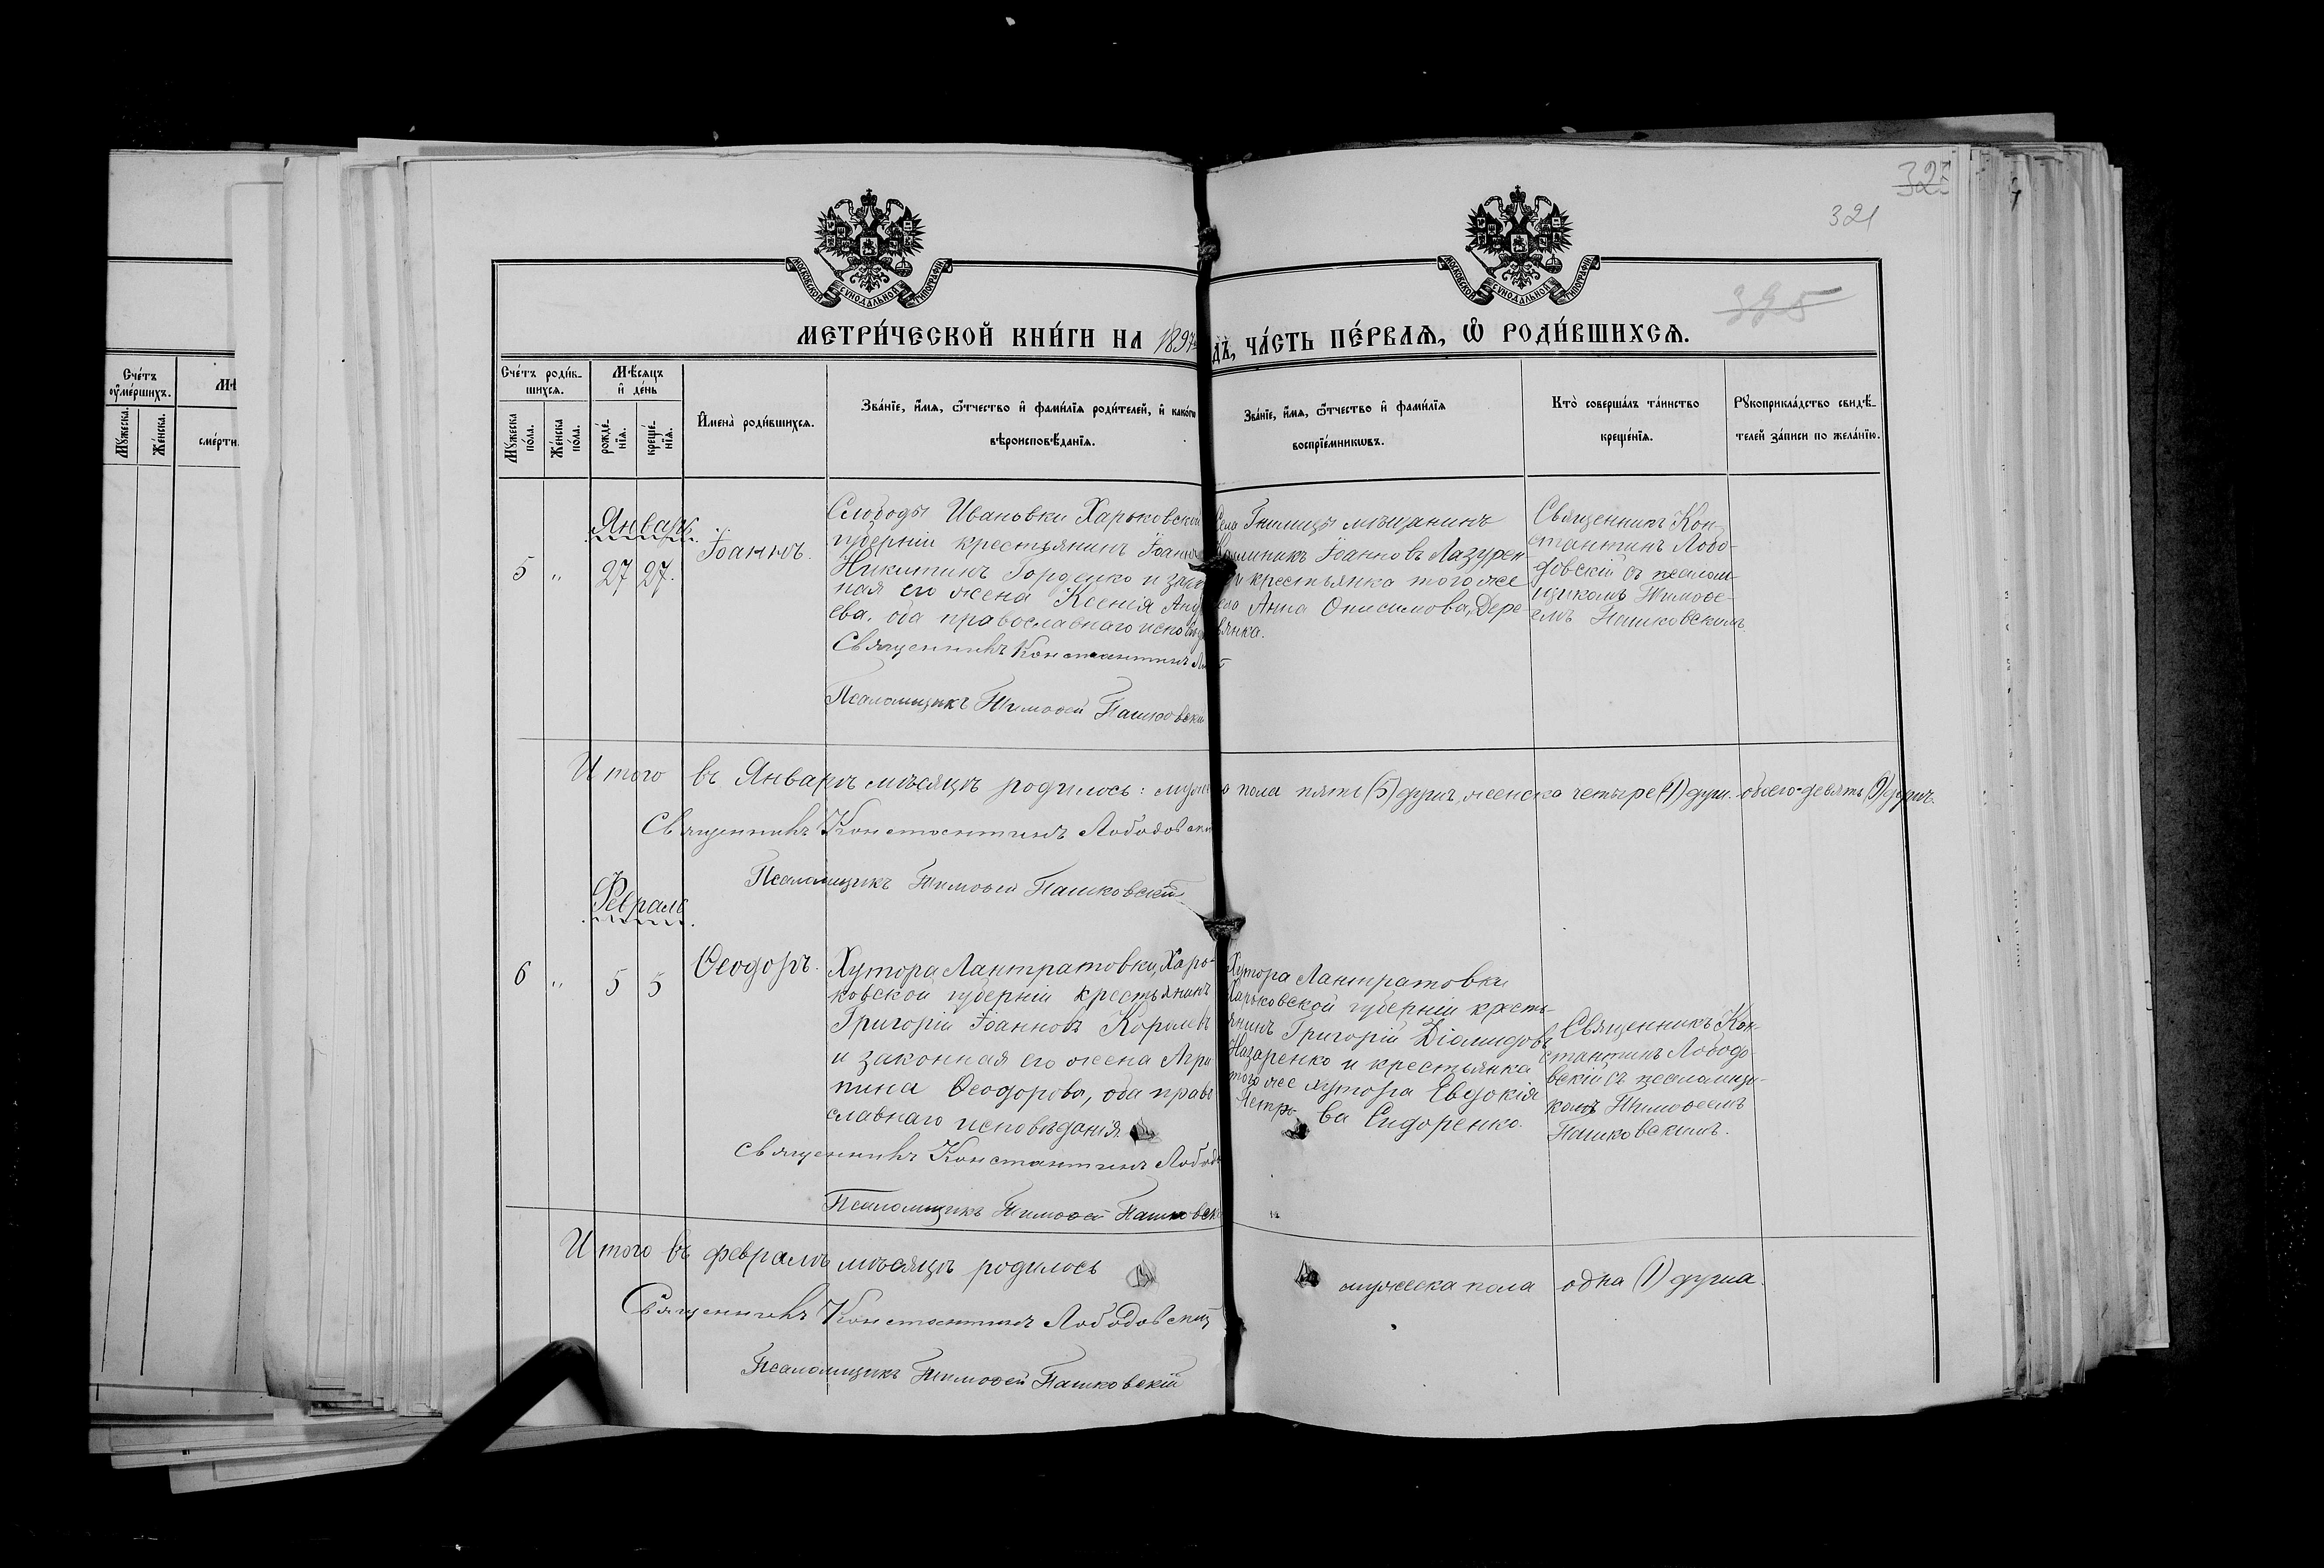 323
321
395
МОСКОВСКОЙ СУНОДАЛЬНОЙ ТИПОГРАФІИ
МОСКОВСКОЙ СУНОДАЛЬНОЙ ТИПОГРАФІИ
МЕТРИ́ЧЕСКОЙ КНИ́ГИ НА 1897
дъ, ЧА́СТЬ ПЕ́РВАѦ, Ѡ РОДИ́ВШИХСѦ.
Счётъ оумéршихъ.
Мꙋжеска.
Жéнска.
смéрти
Счéтъ роди́в-
шихсѧ.
Мꙋжеска пóла.
Жéнска пóла.
Мѣ́сѧцъ и дéнь
рождé-нїѧ.
крещé-нїѧ.
Именà роди́вшихсѧ.
Звáнїе, и́мѧ, ѻ́тчество и фами́лїѧ роди́телей, и какóгѡ
вѣроисповѣ́данїѧ.
Звáнїе, и́мѧ, ѻ́тчество и фами́лїѧ
воспрїéмникѡвъ.
Ктò совершáлъ тáинство
крещéнїѧ.
Рꙋкоприклáдство свидѣ́-
телей зáписи по желáнїю.
Январь
5 " 27 27. Іоаннъ.
Слободы Ивановки Харьковской
губерніи крестьянинъ Іоаннъ
Никитинъ Гордѣнко и закон
ная его жена Ксенія Анд
ева, оба православнаго испов
Священникъ Константинъ Лоб
Псаломщикъ Тимоѳей Пашковскі
Села Гнилицы мѣщанинъ
Каллиникъ Іоанновъ Лазурен
и крестьянка того же
села Анна Онисимова, Дере-
вянка.
Священникъ Кон-
стантинъ Лобо-
довскій съ псалом-
щикомъ Тимоѳе-
емъ Пашковскимъ.
Итого въ Январѣ мѣсяцѣ родилось: мужеска пола пять (5) душъ, женска четыре (4) душ. обоего девять (9) душъ.
Священникъ Константинъ Лободовскі
Псаломщикъ Тимоѳей Пашковскій
Февраль
6 " 5 5 Ѳеодоръ.
Хутора Лантратовки, Харь-
ковской губерніи крестьянинъ
Григорій Іоанновъ Королевъ
и законная его жена Агри
пина Ѳеодорова, оба право
славнаго исповѣданія.
Священникъ Константинъ Лободо
Псаломщикъ Тимоѳей Пашковскі
Хутора Лантратовки
Харьковской губерніи кресть-
янинъ Григорій Діомидовъ
Назаренко и крестьянка
того же хутора Евдокія
Петро ва Сидоренко.
Священникъ Кон-
стантинъ Лободо
вскій съ псаломщи-
комъ Тимоѳеемъ
Пашковскимъ.
Итого въ февралѣ мѣсяцѣ родилось мужеска пола одна (1) душа.
Священникъ Константинъ Лободовскій
Псаломщикъ Тимоѳей Пашковскій